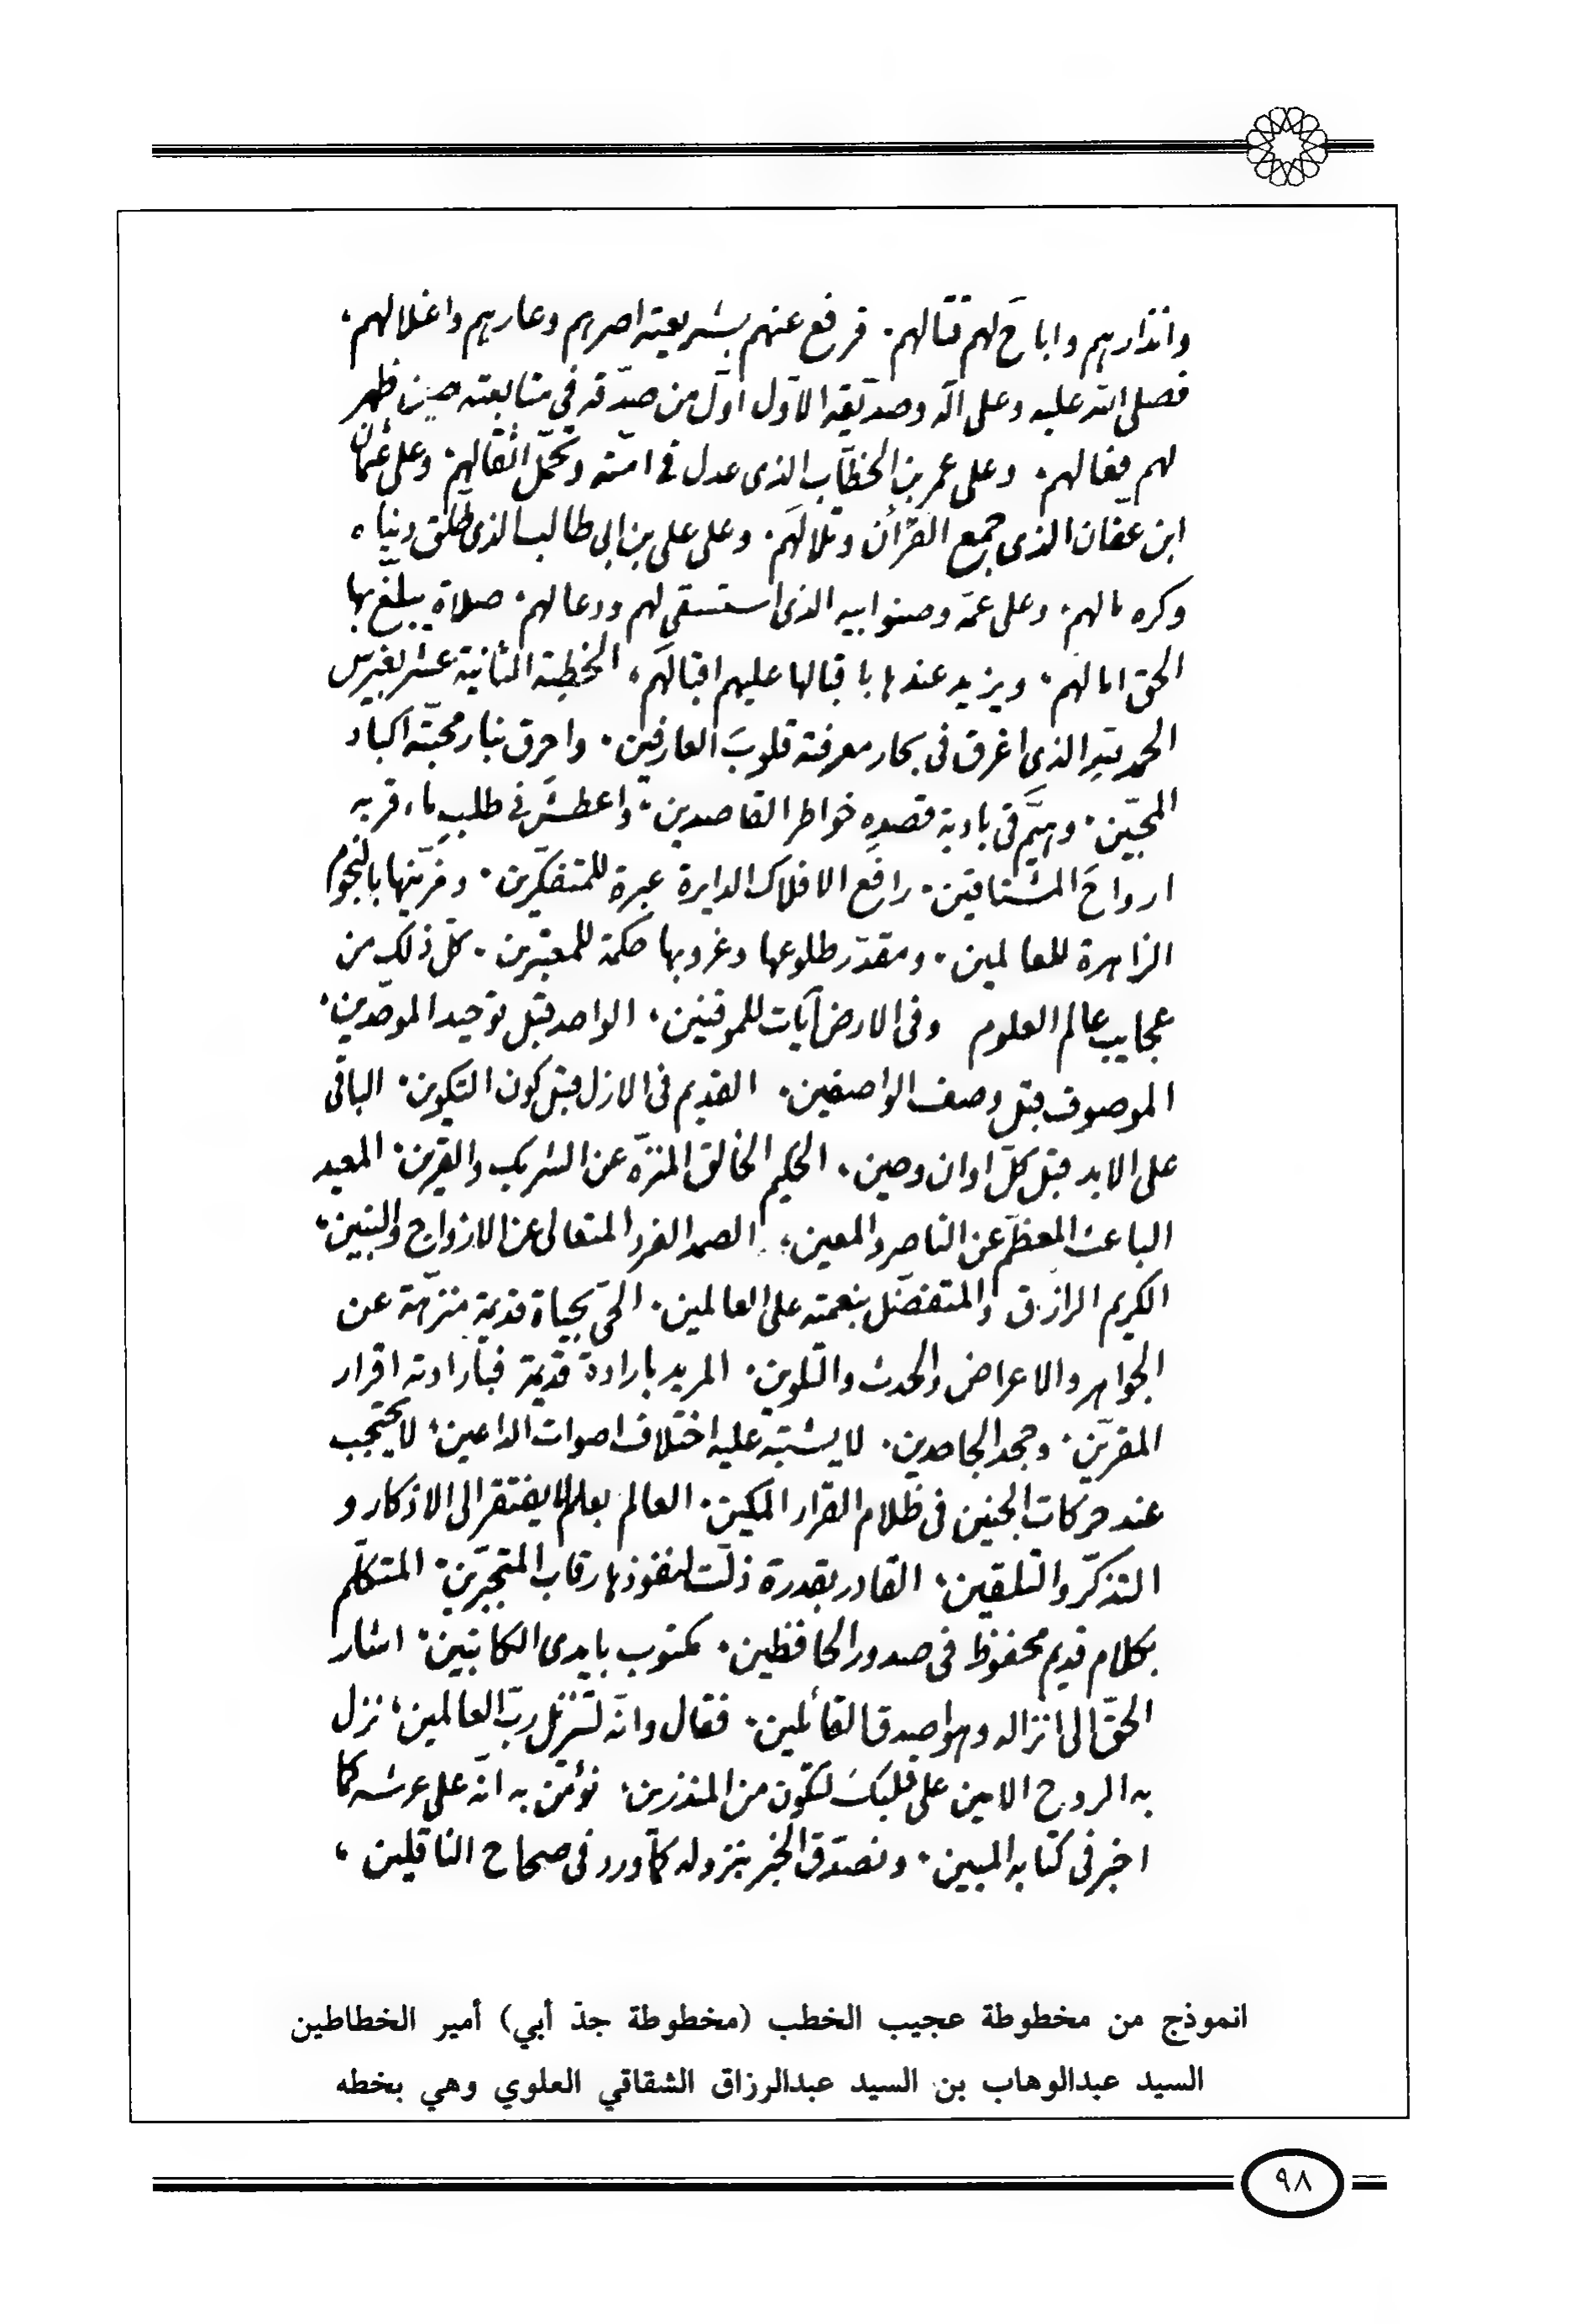 وانذارهم واباحَ لهم قتالهم. فرفع عنهم بشريعته اصرهم وعارهم واغلالهم.
فصلى الله عليه وعلى آله وصدّيقه الاول اوّل من صدّقه في متابعته حين ظهر
لهم فعالهم. وعلى عمر بن الخطّاب الذى عدل فى امّته وتحمّل اثقالهم. وعلى عثمان
ابن عفّان الذى جمع القرأن وتلالهم. وعلى على بن ابى طالب الذى طلّق دنياه
وكره مالهم. وعلى عمّه وصنو ابيه الذى استسقى لهم ودعا لهم. صلاة يبلّغ بها
الحق امالهم. ويزيد عندها باقبالها عليهم اقبالهم. الخطبة الثانية عشر بغير س
الحمد لله الذى اغرق فى بحار معرفته قلوبَ العارفين. واحرق بنار محبّته اكباد
المحبّين. وهيّم فى بادية قصدِه خواطر القاصدين. واعطشَ فى طلب ماء قربه
ارواحَ المشتاقين. رافع الافلاك الدايرة عبرة للمتفكّرين. ومزيّنها بالنجوم
الزاهرة للعالمين. ومقدّر طلوعها وغروبها حكمة للمعتبرين. كل ذلك من
عجايب عالم العلوم وفى الارض آيات للموقنين. الواحد قبل توحيد الموحّدين.
الموصوف قبل وصف الواصفين. القديم فى الازل قبل كون التكوين. الباقى
على الابد قبل كلّ اوان وحين. الحكيم الخالق المنزّه عن الشريك والقرين. المعيد
الباعث المعظّم عن الناصر والمعين. الصمد الفرد المتعالى عن الازواج والبنين.
الكريم الرازق والمتفضّل بنعمته على العالمين. الحىّ بحياة قديمة منزّهة عن
الجواهر والاعراض والحدث والتلوين. المريد بارادة قديمة فبارادته اقرار
المقرّين. وجحد الجاحدين. لا يشتبه عليه اختلاف اصوات الداعين. لا يحتجب
عند حركات الجنين فى ظلام القرار المكين. العالم بعلم لا يفتقر الى الاذكار و
التذكّر والتلقين. القادر بقدرة ذلّت لنفوذها رقاب المتجبّرين. المتكلّم
بكلام قديم محفوظ فى صدور الحافظين. مكتوب بايدى الكاتبين. اشار
الحقّ الى انزاله وهو اصدق القائلين. فقال وانّه لتنزيل ربّ العالمين. نزل
به الروح الامين على قلبكَ لتكون من المنذرين. نؤمن به انّه على عرشه كما
اخبر فى كتابه المبين. ونصدّق الخبر بنزوله كما ورد فى صحاح الناقلين.
انموذج من مخطوطة عجيب الخطب (مخطوطة جدّ أبي) أمير الخطاطين
السيد عبدالوهاب بن السيد عبدالرزاق الشقاقي العلوي وهي بخطه
٩٨